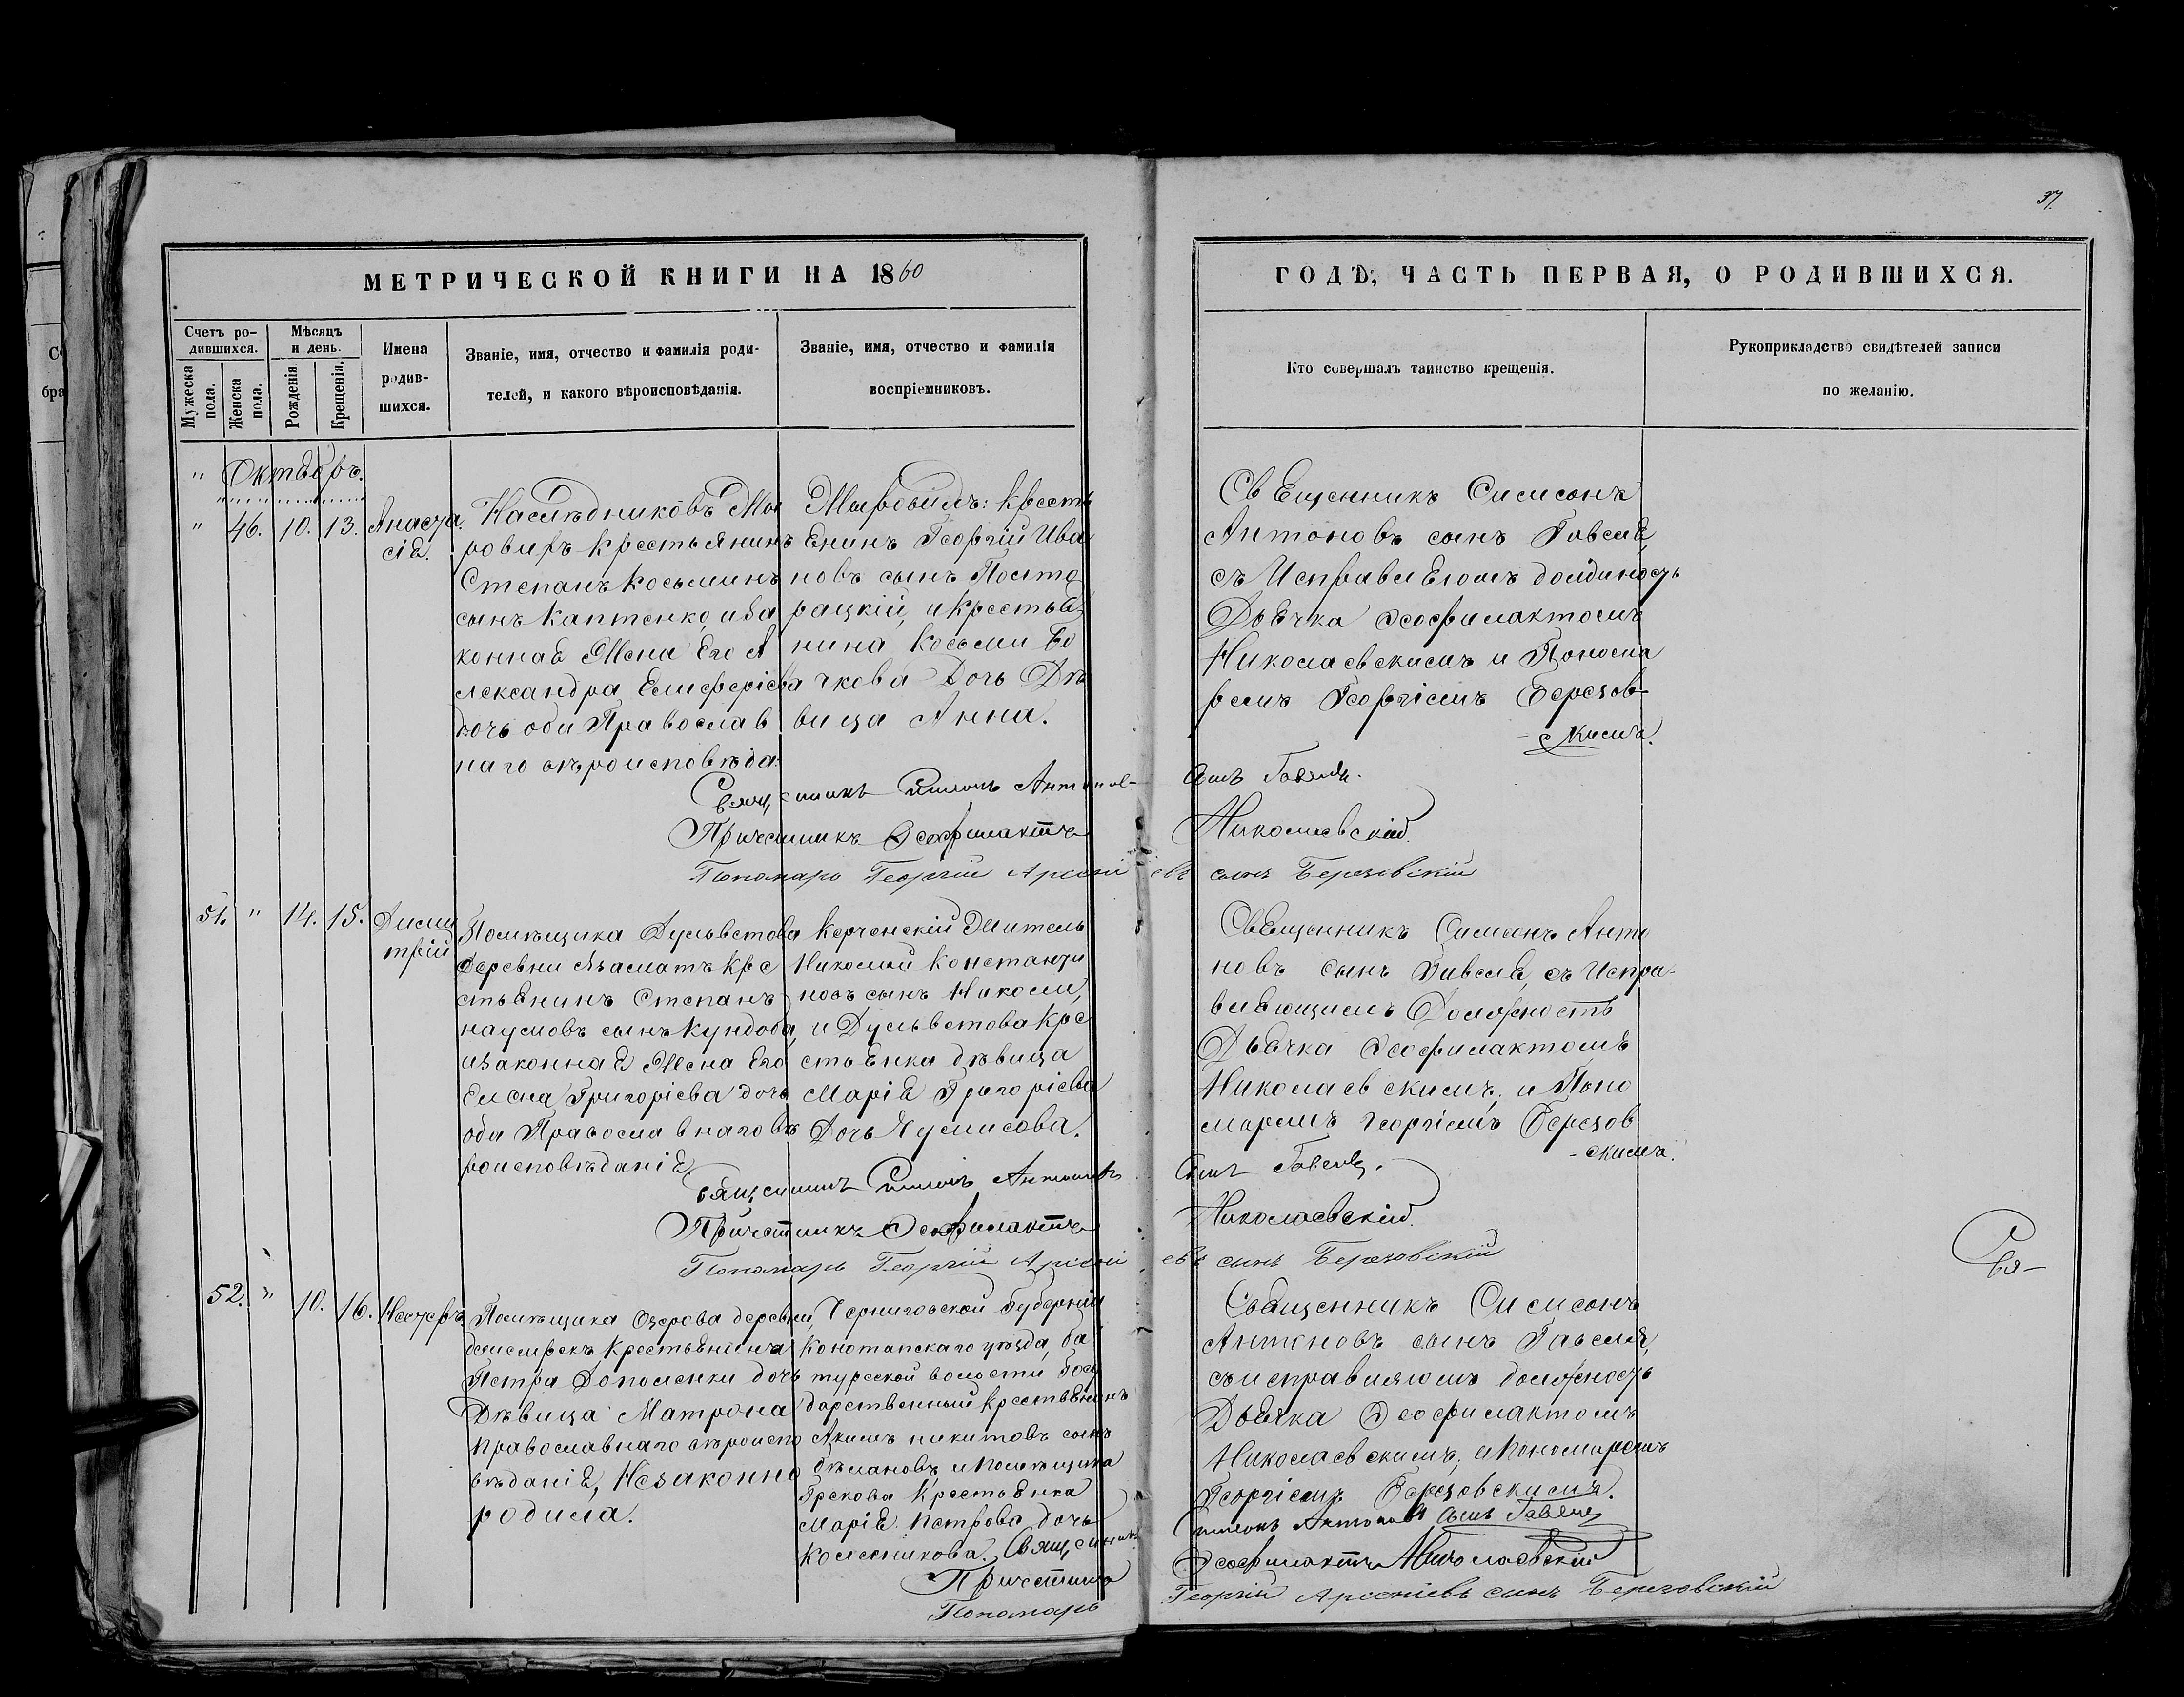 37.
МЕТРИЧЕСКОЙ КНИГИ НА 1860
ГОДѢ, ЧАСТЬ ПЕРВАЯ, О РОДИВШИХСЯ.
Счетъ ро-
дившихся.
Мужеска
пола.
Женска
пола.
Мѣсяцъ
и день.
Рожденія.
Крещенія.
Имена
родив-
шихся.
Званіе, имя, отчество и фамилія роди-
телей, и какого вѣроисповѣданія.
Званіе, имя, отчество и фамилія
воспріемниковъ.
Кто совершалъ таинство крещенія.
Рукоприкладство свидѣтелей записи
по желанію.
" Октябрь.
" 46. 10. 13. Анаста
сія.
Наслѣдниковъ Мы
ровихъ крестьянинъ
Степанъ Косьминъ
сынъ Каптенко, иза
конная жена его А
лександра Елисферіева
дочь оби Православ
наго вѣроисповѣда.
крестья
енинъ Георгій Ива
новъ сынъ Полто
рацкій, и крестья
нина Косьми Бо
чкова дочь Дѣ
вица Анна.
Священникъ Симеонъ
Антоновъ сынъ
съ должность
Дьячка Феофилактомъ
Николаевскимъ и Понома
ремъ Георгіемъ Березов-
скимъ.
Священникъ Симеонъ Антонов-
сынъ
Причетникъ Феофилактъ Николаевскій
Пономарь Георгій Арсеніевъ сынъ Березовскій
51. " 14. 15. Дими
трій
Помѣщика Дульветова
деревни Азаматъ кре
стьянинъ Степанъ
наумовъ сынъ Кундоба,
изаконная жена его
Елена Григоріева дочь
оби Православнаго вѣ
роисповѣданія
Керченскій житель
Николай Константи
новъ сынъ Николи,
и Дульветова кре
стьянка дѣвица
Марія Григоріева
дочь
Священникъ Симеонъ Анто
новъ сынъ съ Испра-
вляющимъ Должность
Дьячка Феофилактомъ
Николаевскимъ, и Поно
маремъ Георгіемъ Березов
-скимъ.
Священникъ Симеонъ Антоновъ
сынъ
Причетникъ Феофилактъ Николаевскій
Пономарь Георгій Арсеніевъ сынъ Березовскій
Свя-
52. " 10. 16. Несторъ
Помѣщика Озерова деревни
крестьянина
Петра дочь
Дѣвица Матрона
православнаго вѣроиспо
вѣданія, Незаконно
родила.
Черниговской Губерніи
Конотопскаго уѣзда, ба
турской волости Госу
дарственный крестьянинъ
Акимъ никитовъ сынъ
и помѣщика
Грекова крестьянка
Марія Петрова дочь
Колесникова.
Священникъ Симеонъ
Антоновъ сынъ
должность
Дьячка Феофилактомъ
Николаевскимъ, и пономаремъ
Георгіемъ Березовскимъ.
Священникъ
Симеонъ Антоновъ сынъ
Причетникъ
Феофилактъ Николаевскій
Пономарь
Георгій Арсеніевъ сынъ Березовскій